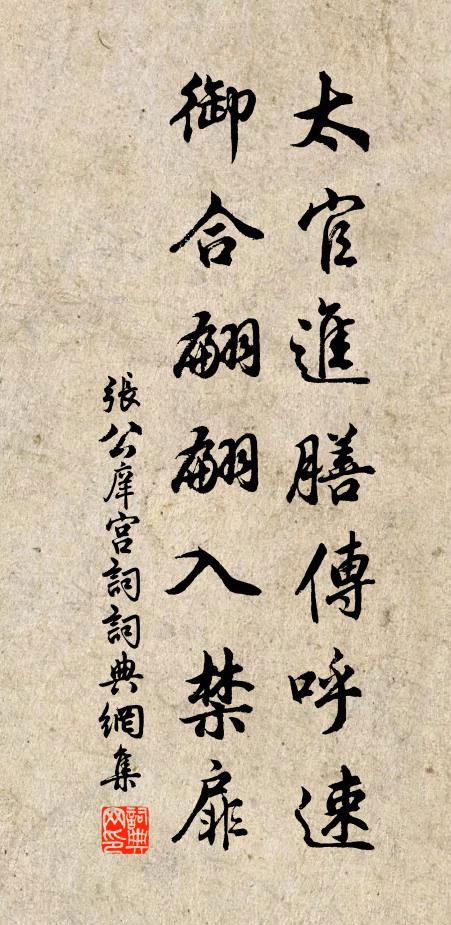 太官進膳傳呼速
御合翩翩入禁扉
張公庠宮詞詞典網集
詞典網印